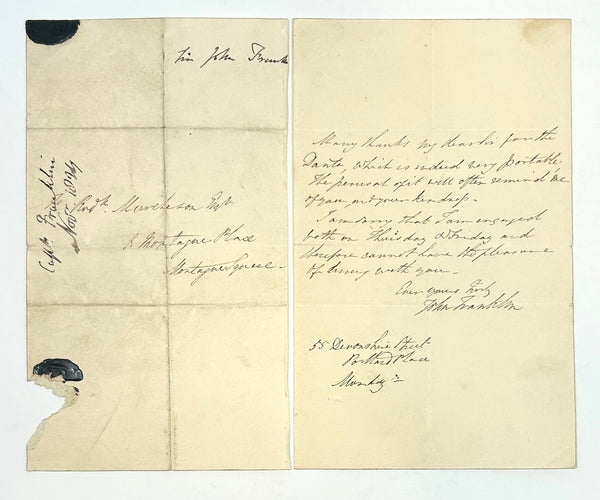 Sir John Frank
Capt. Franklin
Nov.
Rodk. Murchison Esqr
Montague Place
Montague Square
Many thanks my dear Sir for the
Dante, which is indeed very portable,
The perusal of it will often remind me
of you, and your kindness.
I am sorry that I am engaged
both on Thursday & Friday and
therefore cannot have the pleasure
of dining with you.
Ever yours truly
John Franklin
55 Devonshire Street
Portland Place
Monday